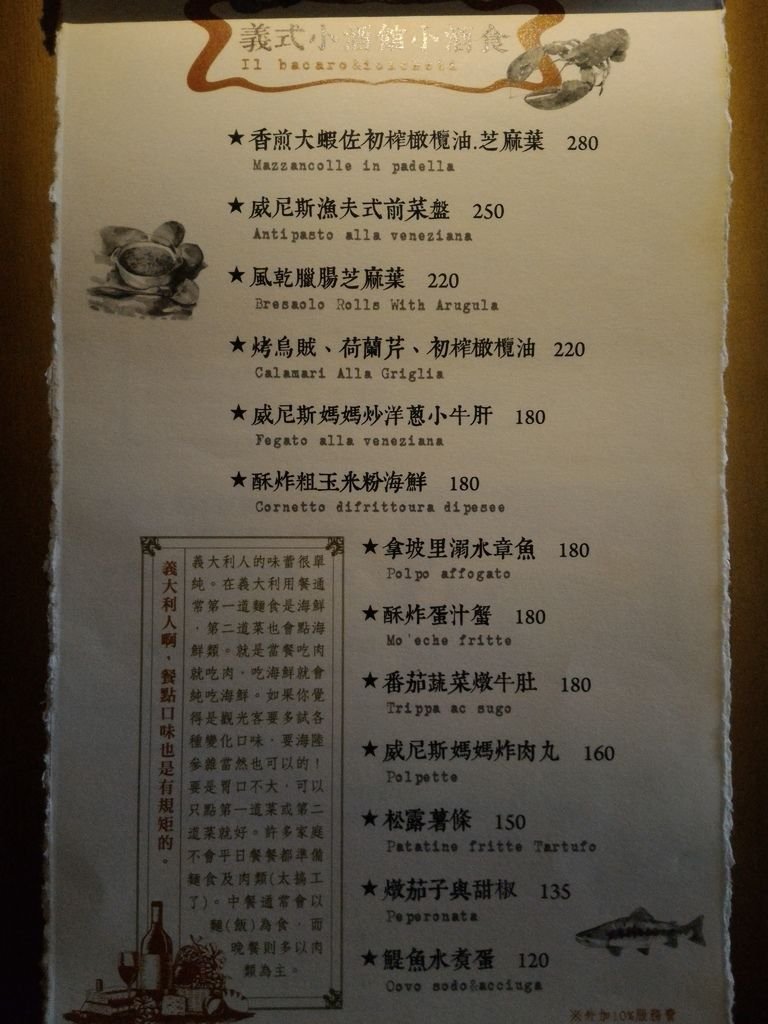 義式小酒館小酒食
Il bacaro&
★香煎大蝦佐初榨橄欖油.芝麻葉 280
Mazzancolle in padella
★威尼斯漁夫式前菜盤 250
Antipasto alla veneziana
★風乾臘腸芝麻葉 220
Bresaolo Rolls With Arugula
★烤烏賊、荷蘭芹、初榨橄欖油 220
Calamari Alla Griglia
★威尼斯媽媽炒洋蔥小牛肝 180
Fegato alla veneziana
★酥炸粗玉米粉海鮮 180
Cornetto difrittoura dipesee
★拿坡里溺水章魚 180
Polpo affogato
★酥炸蛋汁蟹 180
Mo'eche fritte
★番茄蔬菜燉牛肚 180
Trippa ac sugo
★威尼斯媽媽炸肉丸 160
Polpette
★松露薯條 150
Patatine fritte Tartufo
★燉茄子與甜椒 135
Peperonata
★鯷魚水煮蛋 120
Oovo sodo&acciuga
義大利人啊，餐點口味也是有規矩的。
義大利人的味蕾很單
純。在義大利用餐通
常第一道麵食是海鮮
，第二道菜也會點海
鮮類。就是當餐吃肉
就吃肉，吃海鮮就會
純吃海鮮。如果你覺
得是觀光客要多試各
種變化口味，要海陸
參雜當然也可以的！
要是胃口不大，可以
只點第一道菜或第二
道菜就好。許多家庭
不會平日餐餐都準備
麵食及肉類(太搞工
了)。中餐通常會以
麵(飯)為食，而
晚餐則多以肉
類為主。
※外加10%服務費